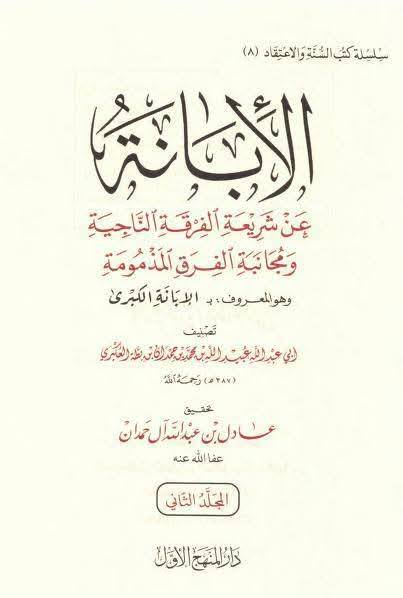 سِلْسِلَة كُتُب السُّنَّة وَالاعتِقاد (٨)
الإبَانَةُ
عَنْ شَرِيْعَةِ الفِرْقَةِ النَّاجِيَةِ
وَمُجَانَبَةِ الفِرَقِ المَذْمُومَةِ
وهو المعروف: بـ الإبَانَةِ الكُبْرىٰ
تَصْنِيف
ابي عَبْدالله عُبَيدِ اللهِ بْن مُحَمَّد بْن حَمْدَان بْن بَطَّة العُكْبَري
(٣٨٧هـ) رَحِمَهُ اللَّهُ
تحقيق
عَادل بْن عَبْدالله آل حَمْدان
عفا الله عنه
المجَلَّدُ الثَّاني
دَارُ المَنهَج الأوَّل